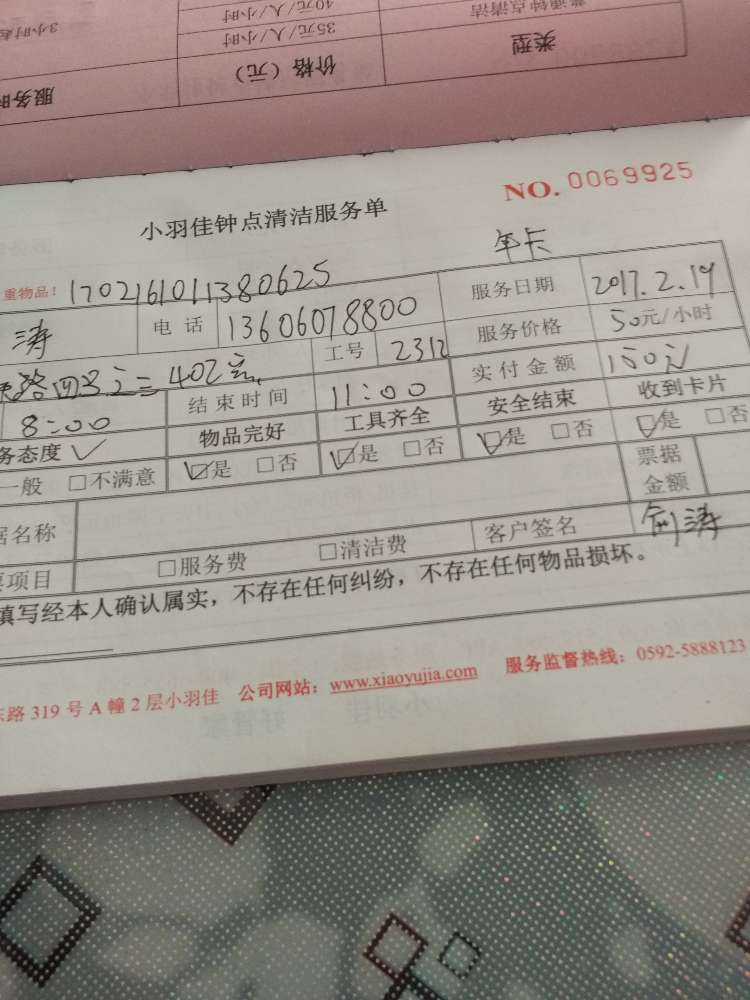 3小时起
40元/人/小时
普通钟点清洁
35元/人/小时
服务时
价格（元）
类型
NO. 0069925
小羽佳钟点清洁服务单
年卡
重物品！ 1702161011380625
涛 电话 13606078800 服务日期 2017.2.19
工号 2312 服务价格 50元/小时
402室 实付金额 150元
8:00 结束时间 11:00 安全结束 收到卡片
务态度 ✓ 物品完好 工具齐全
一般 □不满意 ☑是 □否 ☑是 □否 ☑是 □否 ☑是 □否
据名称 票据金额
票项目 □服务费 □清洁费 客户签名 涛
填写经本人确认属实，不存在任何纠纷，不存在任何物品损坏。
东路 319 号 A 幢 2 层小羽佳 公司网站：www.xiaoyujia.com 服务监督热线：0592-5888123